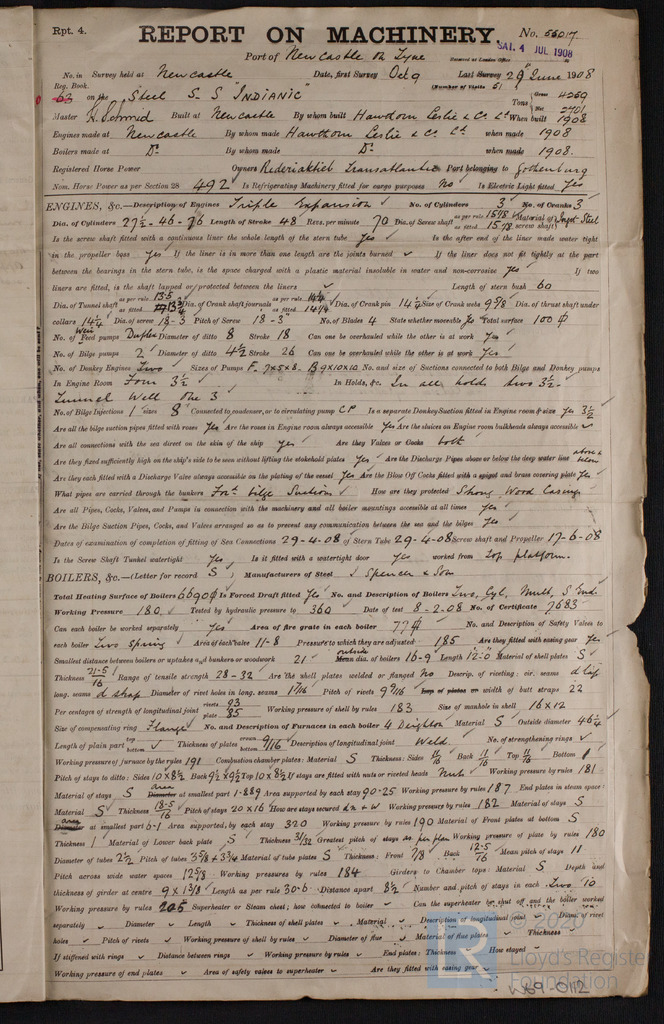 Rpt. 4. REPORT ON MACHINERY. No. 55017
Port of Newcastle on Tyne Received at London Office SAT. 4 JUL 1908
No. in Survey held at Newcastle Date, first Survey Oct 9 Last Survey 29 June 1908
Reg. Book. (Number of Visits 51)
63 on the Steel S.S "INDIANIC" Tons Gross 4269 Net 2701
Master Built at Newcastle By whom built Hawthorn Leslie & Co. Ld When built 1908
Engines made at Newcastle By whom made Hawthorn Leslie & Co. Ld when made 1908
Boilers made at Do By whom made Do when made 1908.
Registered Horse Power Owners Rederiaktieb Transatlantic Port belonging to Gothenburg
Nom. Horse Power as per Section 28 492 Is Refrigerating Machinery fitted for cargo purposes No Is Electric Light fitted Yes
ENGINES, &c.—Description of Engines Triple Expansion No. of Cylinders 3 No. of Cranks 3
Dia. of Cylinders 27½-46-76 Length of Stroke 48 Revs. per minute 70 Dia. of Screw shaft as per rule 15 1/8 as fitted 15 7/8 Material of screw shaft Ingot Steel
Is the screw shaft fitted with a continuous liner the whole length of the stern tube Yes Is the after end of the liner made water tight
in the propeller boss Yes If the liner is in more than one length are the joints burned ✓ If the liner does not fit tightly at the part
between the bearings in the stern tube, is the space charged with a plastic material insoluble in water and non-corrosive Yes If two
liners are fitted, is the shaft lapped or protected between the liners ✓ Length of stern bush 60
Dia. of Tunnel shaft as per rule 13.5 as fitted 13¾ Dia. of Crank shaft journals as per rule 14¼ as fitted 14¼ Dia. of Crank pin 14¼ Size of Crank webs 9⅝ Dia. of thrust shaft under
collars 14¼ Dia. of screw 18-3 Pitch of Screw 18-3 No. of Blades 4 State whether moveable Yes Total surface 100
No. of Weir Feed pumps Duplex Diameter of ditto 8 Stroke 18 Can one be overhauled while the other is at work Yes
No. of Bilge pumps 2 Diameter of ditto 4½ Stroke 26 Can one be overhauled while the other is at work Yes
No. of Donkey Engines Two Sizes of Pumps F. 7x5x8. B 9x10x10 No. and size of Suctions connected to both Bilge and Donkey pumps
In Engine Room Four 3½ In Holds, &c. In all holds two 3½.
Tunnel Well One 3
No. of Bilge Injections 1 sizes 8 Connected to condenser, or to circulating pump C.P Is a separate Donkey Suction fitted in Engine room & size Yes 3½
Are all the bilge suction pipes fitted with roses Yes Are the roses in Engine room always accessible Yes Are the sluices on Engine room bulkheads always accessible ✓
Are all connections with the sea direct on the skin of the ship Yes Are they Valves or Cocks both
Are they fixed sufficiently high on the ship's side to be seen without lifting the stokehold plates Yes Are the Discharge Pipes above or below the deep water line above & below
Are they each fitted with a Discharge Valve always accessible on the plating of the vessel Yes Are the Blow Off Cocks fitted with a spigot and brass covering plate Yes
What pipes are carried through the bunkers Ford bilge Suctions How are they protected Strong Wood Casings
Are all Pipes, Cocks, Valves, and Pumps in connection with the machinery and all boiler mountings accessible at all times Yes
Are the Bilge Suction Pipes, Cocks, and Valves arranged so as to prevent any communication between the sea and the bilges Yes
Dates of examination of completion of fitting of Sea Connections 29-4-08 of Stern Tube 29-4-08 Screw shaft and Propeller 17-6-08
Is the Screw Shaft Tunnel watertight Yes Is it fitted with a watertight door Yes worked from top platform.
BOILERS, &c.—(Letter for record S) Manufacturers of Steel J Spencer & Son
Total Heating Surface of Boilers 6690 Is Forced Draft fitted Yes No. and Description of Boilers Two, Cyl, Mult, S End
Working Pressure 180 Tested by hydraulic pressure to 360 Date of test 8-2-08 No. of Certificate 7683
Can each boiler be worked separately Yes Area of fire grate in each boiler 77 No. and Description of Safety Valves to
each boiler Two Spring Area of each valve 11-8 Pressure to which they are adjusted 185 Are they fitted with easing gear Yes
Smallest distance between boilers or uptakes and bunkers or woodwork 21 outside Mean dia. of boilers 16-9 Length 12-0 Material of shell plates S
Thickness 21.5/16 Range of tensile strength 28-32 Are the shell plates welded or flanged No Descrip. of riveting: cir. seams d lap
long. seams d strap Diameter of rivet holes in long. seams 1 7/16 Pitch of rivets 9 9/16 Lap of plates or width of butt straps 22
Per centages of strength of longitudinal joint rivets 93 plate 85 Working pressure of shell by rules 183 Size of manhole in shell 16x12
Size of compensating ring Flange No. and Description of Furnaces in each boiler 4 Deighton Material S Outside diameter 46¼
Length of plain part top ✓ bottom ✓ Thickness of plates crown bottom 9/16 Description of longitudinal joint Weld No. of strengthening rings ✓
Working pressure of furnace by the rules 191 Combustion chamber plates: Material S Thickness: Sides 11/16 Back 11/16 Top 11/16 Bottom 1
Pitch of stays to ditto: Sides 10x8½ Back 9½x9½ Top 10x8½ If stays are fitted with nuts or riveted heads Nuts Working pressure by rules 181
Material of stays S area Diameter at smallest part 1.889 Area supported by each stay 90.25 Working pressure by rules 187 End plates in steam space:
Material S Thickness 18.5/16 Pitch of stays 20x16 How are stays secured d n + w Working pressure by rules 182 Material of stays S
area Diameter at smallest part 6.1 Area supported, by each stay 320 Working pressure by rules 190 Material of Front plates at bottom S
Thickness 1 Material of Lower back plate S Thickness 31/32 Greatest pitch of stays as per plan Working pressure of plate by rules 180
Diameter of tubes 2½ Pitch of tubes 3⅝ x 3¾ Material of tube plates S Thickness: Front 7/8 Back 12.5/16 Mean pitch of stays 11
Pitch across wide water spaces 12⅝ Working pressures by rules 184 Girders to Chamber tops: Material S Depth and
thickness of girder at centre 9x1⅝ Length as per rule 30.6 Distance apart 8½ Number and pitch of stays in each Two 10
Working pressure by rules 205 Superheater or Steam chest; how connected to boiler ✓ Can the superheater be shut off and the boiler worked
separately ✓ Diameter ✓ Length ✓ Thickness of shell plates ✓ Material ✓ Description of longitudinal joint ✓ Diam. of rivet
holes ✓ Pitch of rivets ✓ Working pressure of shell by rules ✓ Diameter of flue ✓ Material of flue plates ✓ Thickness
If stiffened with rings ✓ Distance between rings ✓ Working pressure by rules ✓ End plates: Thickness ✓ How stayed ✓
Working pressure of end plates ✓ Area of safety valves to superheater ✓ Are they fitted with easing gear ✓
© 2020
Lloyd's Register
Foundation
W69-0112